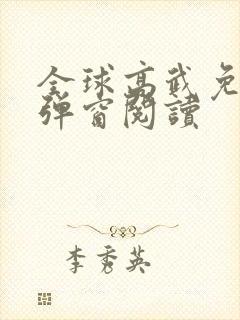 全球高武免
弹窗閱讀
李秀英